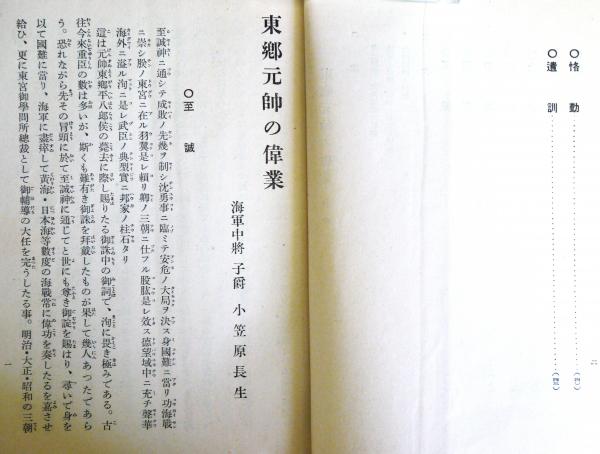 〇恪勤……（四）
〇遺訓……（罢）
二
東郷元帥の偉業
海軍中將 子爵 小笠原長生
〇至誠
至誠神ニ通シテ成敗ノ先幾ヲ制シ沈勇事ニ臨ミテ安危ノ大局ヲ決ス身國難ニ當リ功海戰
ニ崇シ朕ノ東宮ニ在ル羽翼是レ頼リ卿ノ三朝ニ仕フル股肱是レ效ス德望域中ニ充チ聲華
海外ニ溢ル洵ニ是レ武臣ノ典型實ニ邦家ノ柱石タリ
這は元帥東郷平八郎侯の薨去に際し賜りたる御誄中の御詞で、洵に畏き極みである。古
往今來重臣の數は多いが、斯くも難有き御誄を拜戴したものが果して幾人あつたであら
う。恐れながら先その冒頭に於て至誠神に通じてと世にも尊き御諚を賜はり、尋いで身を
以て國難に當り、海軍に盡瘁して黃海・日本海等數度の海戰常に偉功を奏したるを嘉させ
給ひ、更に東宮御學問所總裁として御輔導の大任を完うしたる事。明治・大正・昭和の三朝
一